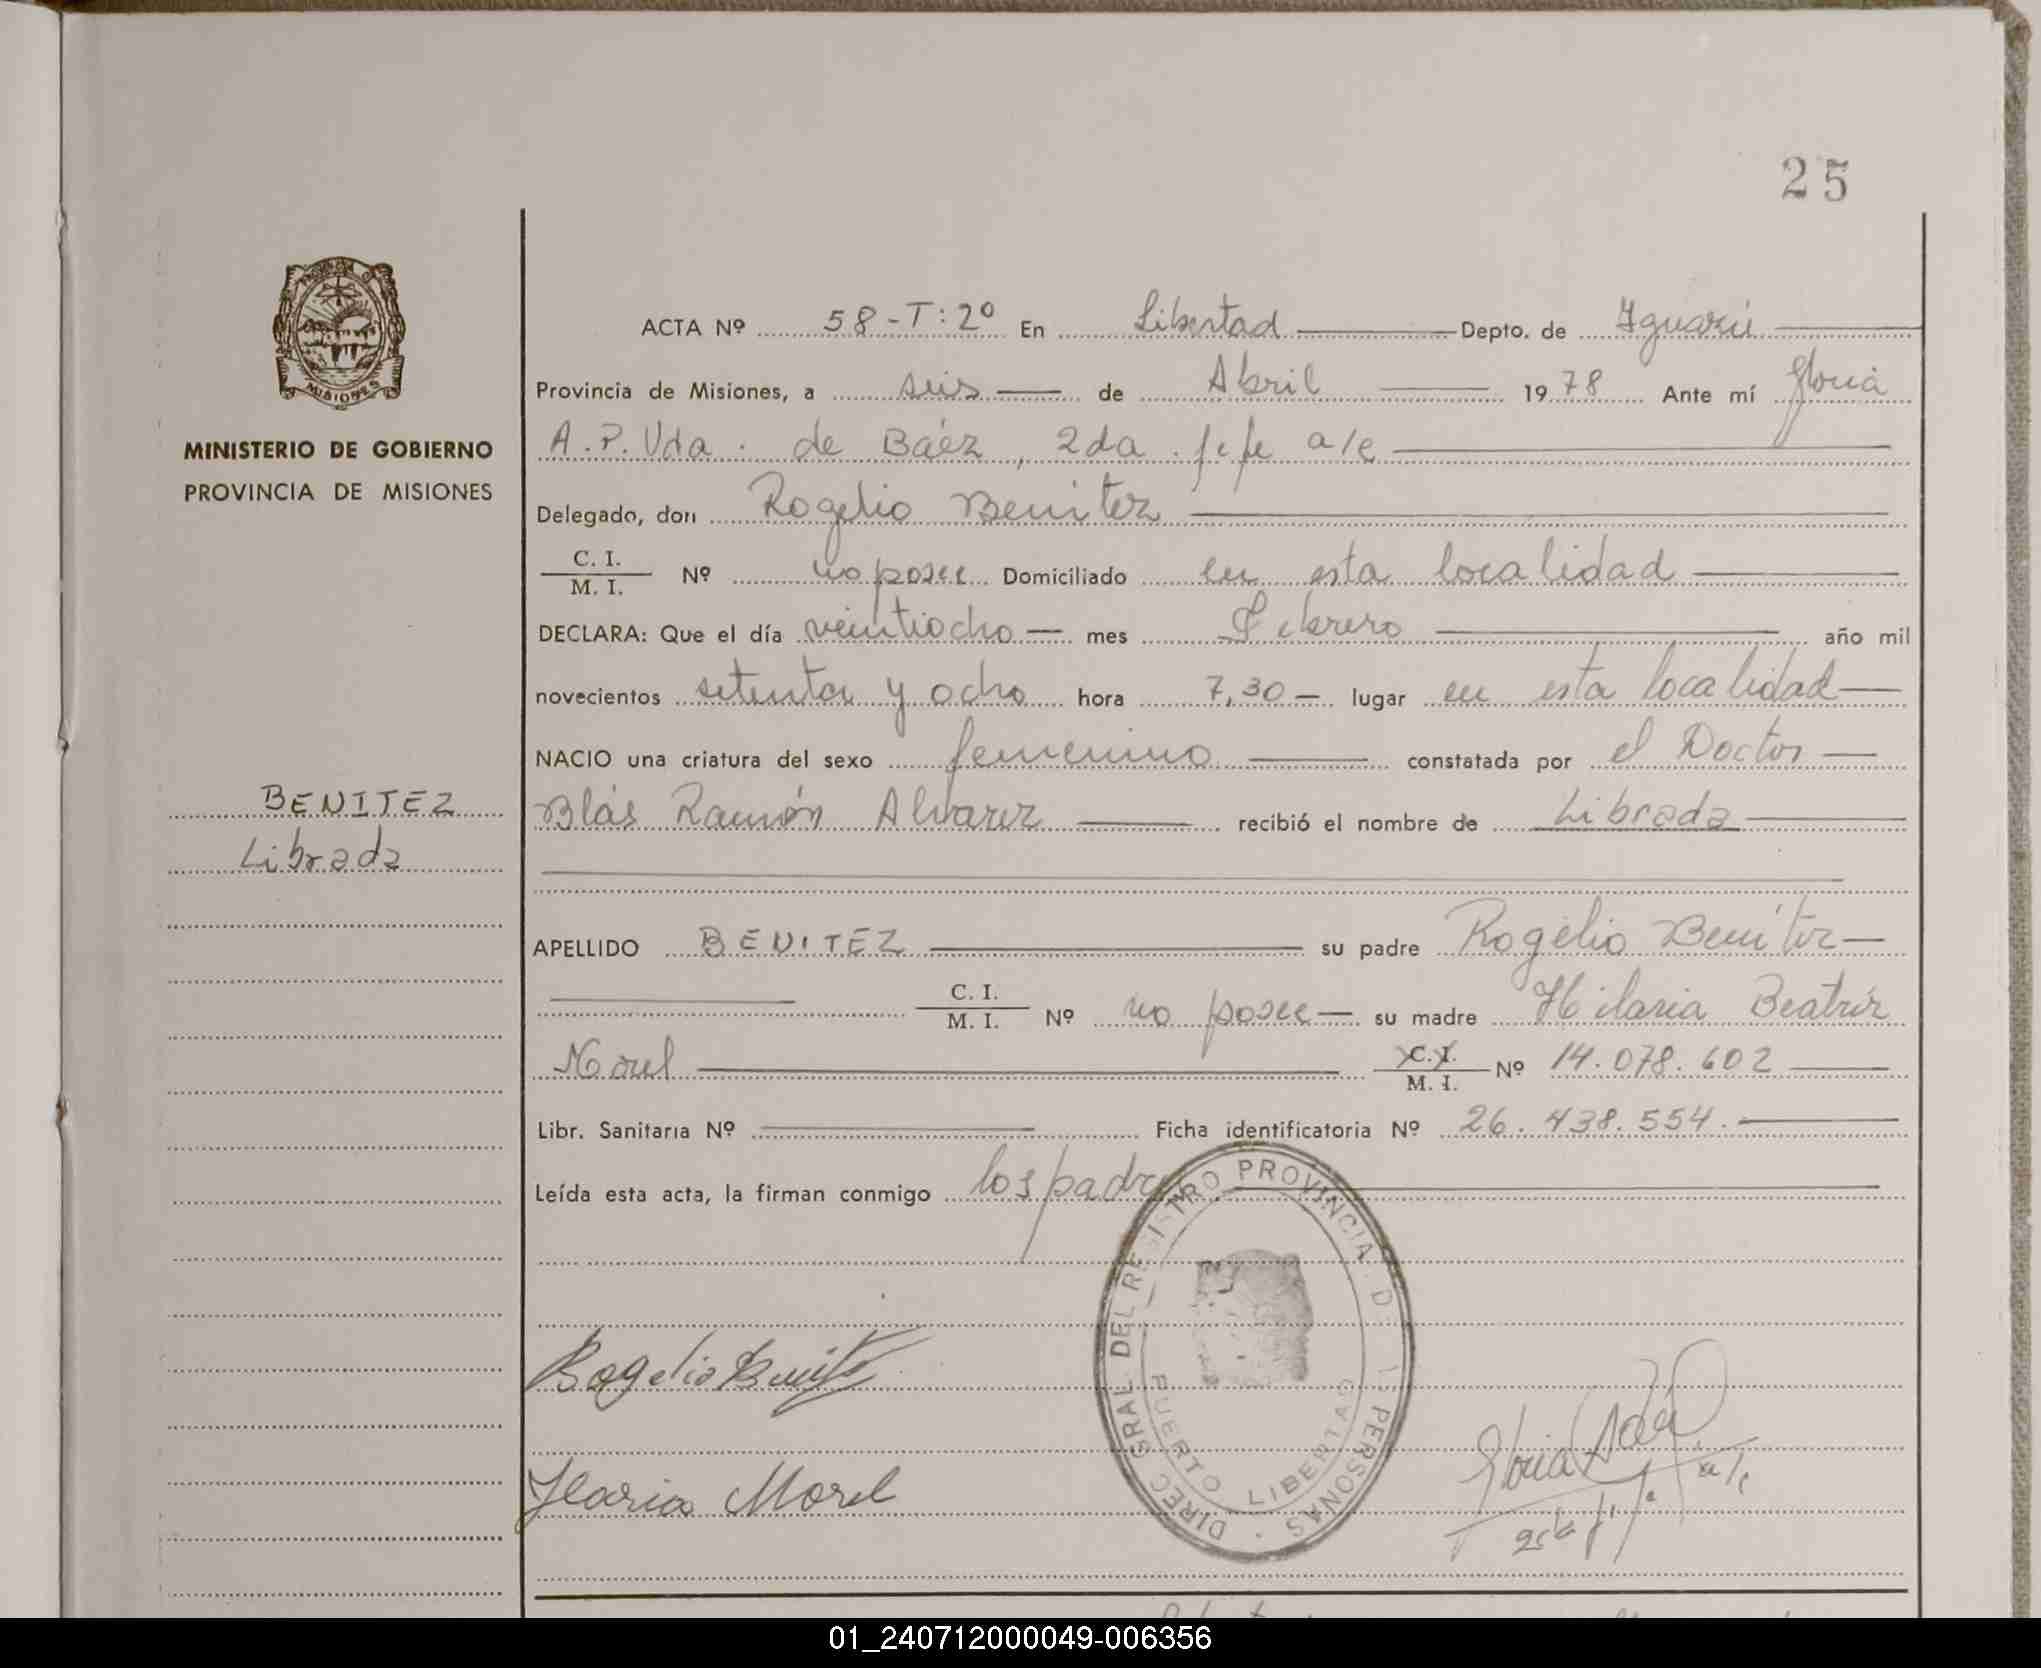 25
MINISTERIO DE GOBIERNO
PROVINCIA DE MISIONES
MISIONES
BENITEZ
Librada
ACTA Nº 58-T:2º En Libertad Depto. de Iguazú
Provincia de Misiones, a seis de Abril 1978 Ante mí Gloria
A.P. Vda. de Báez, 2da. jefe a/c
Delegado, don Rogelio Benitez
C. I.
M. I. Nº no posee Domiciliado en esta localidad
DECLARA: Que el día veintiocho mes Febrero año mil
novecientos setenta y ocho hora 7,30 lugar en esta localidad
NACIO una criatura del sexo femenino constatada por el Doctor
Blás Ramón Alvarez recibió el nombre de Librada
APELLIDO BENITEZ su padre Rogelio Benitez
C. I.
M. I. Nº no posee su madre Hilaria Beatríz
Morel C. I.
M. I. Nº 14.078.602
Libr. Sanitaria Nº Ficha identificatoria Nº 26.438.554.
Leída esta acta, la firman conmigo los padres
DIREC. GRAL. DEL REGISTRO PROVINCIAL DE LAS PERSONAS
PUERTO LIBERTAD
Rogelio Benitez
Ilaria Morel
Gloria
a/c
01_240712000049-006356